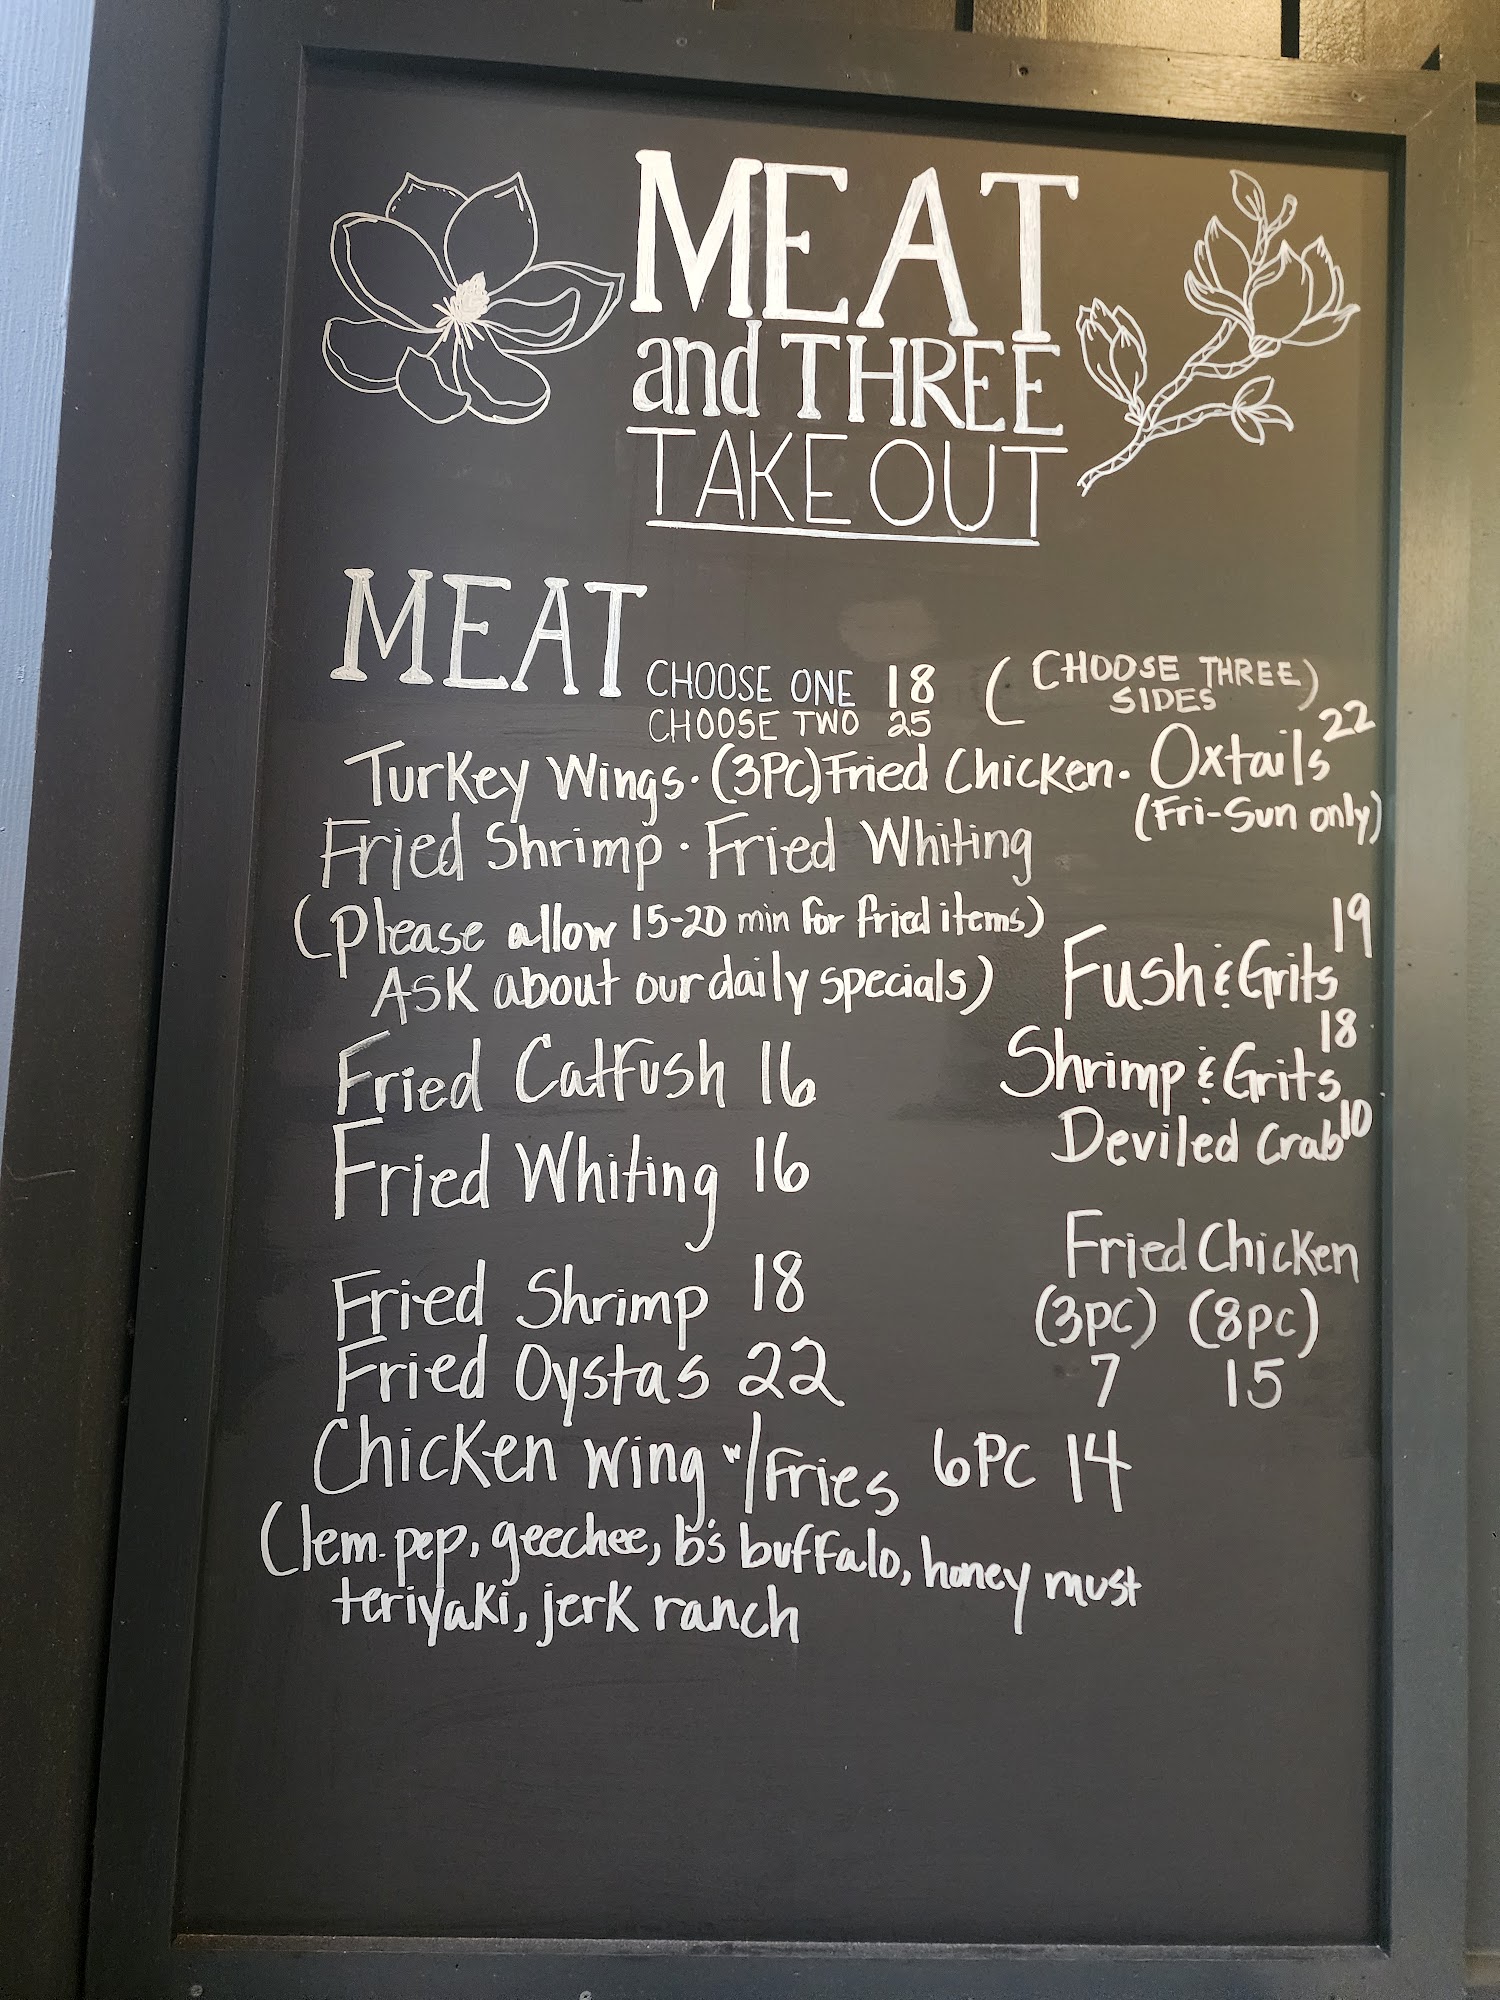 MEAT
and THREE
TAKE OUT
MEAT CHOOSE ONE 18 (CHOOSE THREE)
CHOOSE TWO 25 SIDES
Turkey Wings · (3PC) Fried Chicken · Oxtails 22
(Fri-Sun only)
Fried Shrimp · Fried Whiting
(Please allow 15-20 min for fried items)
ASK about our daily specials)
Fush & Grits 19
Shrimp & Grits 18
Deviled Crab 10
Fried Catfush 16
Fried Whiting 16
Fried Shrimp 18
Fried Oystas 22
Fried Chicken
(3pc) (8pc)
7 15
Chicken wing w/ Fries 6PC 14
(lem. pep, geechee, b's buffalo, honey must
teriyaki, jerk ranch